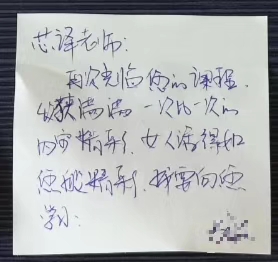 芯译老师:
再次光临您的课程,
收获满满 一次比一次的
内容精彩, 女人活得和
您般精彩, 我要向您
学习: